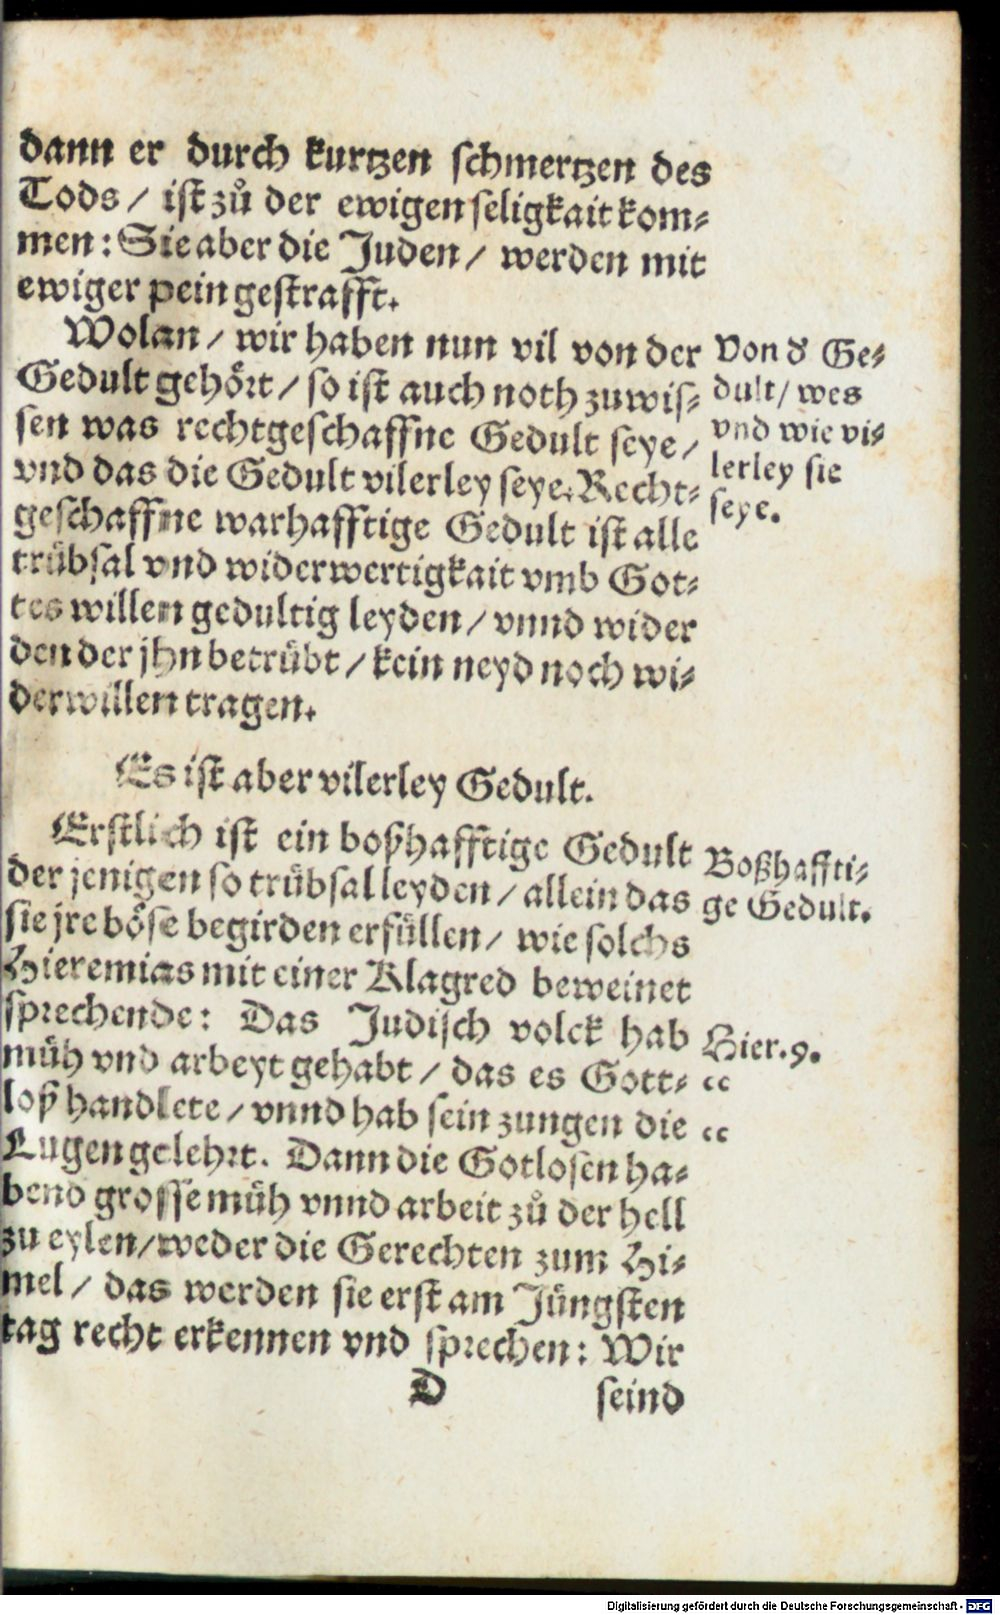 dann er durch kurtzen schmertzen des
Tods / ist zů der ewigen seligkait kom⸗
men: Sie aber die Juden / werden mit
ewiger pein gestrafft.
Wolan / wir haben nun vil von der
Gedult gehört / so ist auch noth zuwis⸗
sen was rechtgeschaffne Gedult seye /
vnd das die Gedult vilerley seye. Recht⸗
geschaffne warhafftige Gedult ist alle
trübsal vnd widerwertigkait vmb Got⸗
tes willen gedultig leyden / vnnd wider
den der jhn betrübt / kein neyd noch wi⸗
derwillen tragen.
Von d' Ge⸗
dult / wes
vnd wie vi⸗
lerley sie
seye.
Es ist aber vilerley Gedult.
Erstlich ist ein boßhafftige Gedult
der jenigen so trübsal leyden / allein das
sie jre böse begirden erfüllen / wie solchs
Hieremias mit einer Klagred beweinet
sprechende: Das Judisch volck hab
müh vnd arbeyt gehabt / das es Gott⸗
loß handlete / vnnd hab sein zungen die
Lugen gelehrt. Dann die Gotlosen ha⸗
bend grosse müh vnnd arbeit zů der hell
zu eylen / weder die Gerechten zum Hi⸗
mel / das werden sie erst am Jüngsten
tag recht erkennen vnd sprechen: Wir
Boßhaffti⸗
ge Gedult.
Hier. 9.
“
“
D
seind
Digitalisierung gefördert durch die Deutsche Forschungsgemeinschaft - DFG